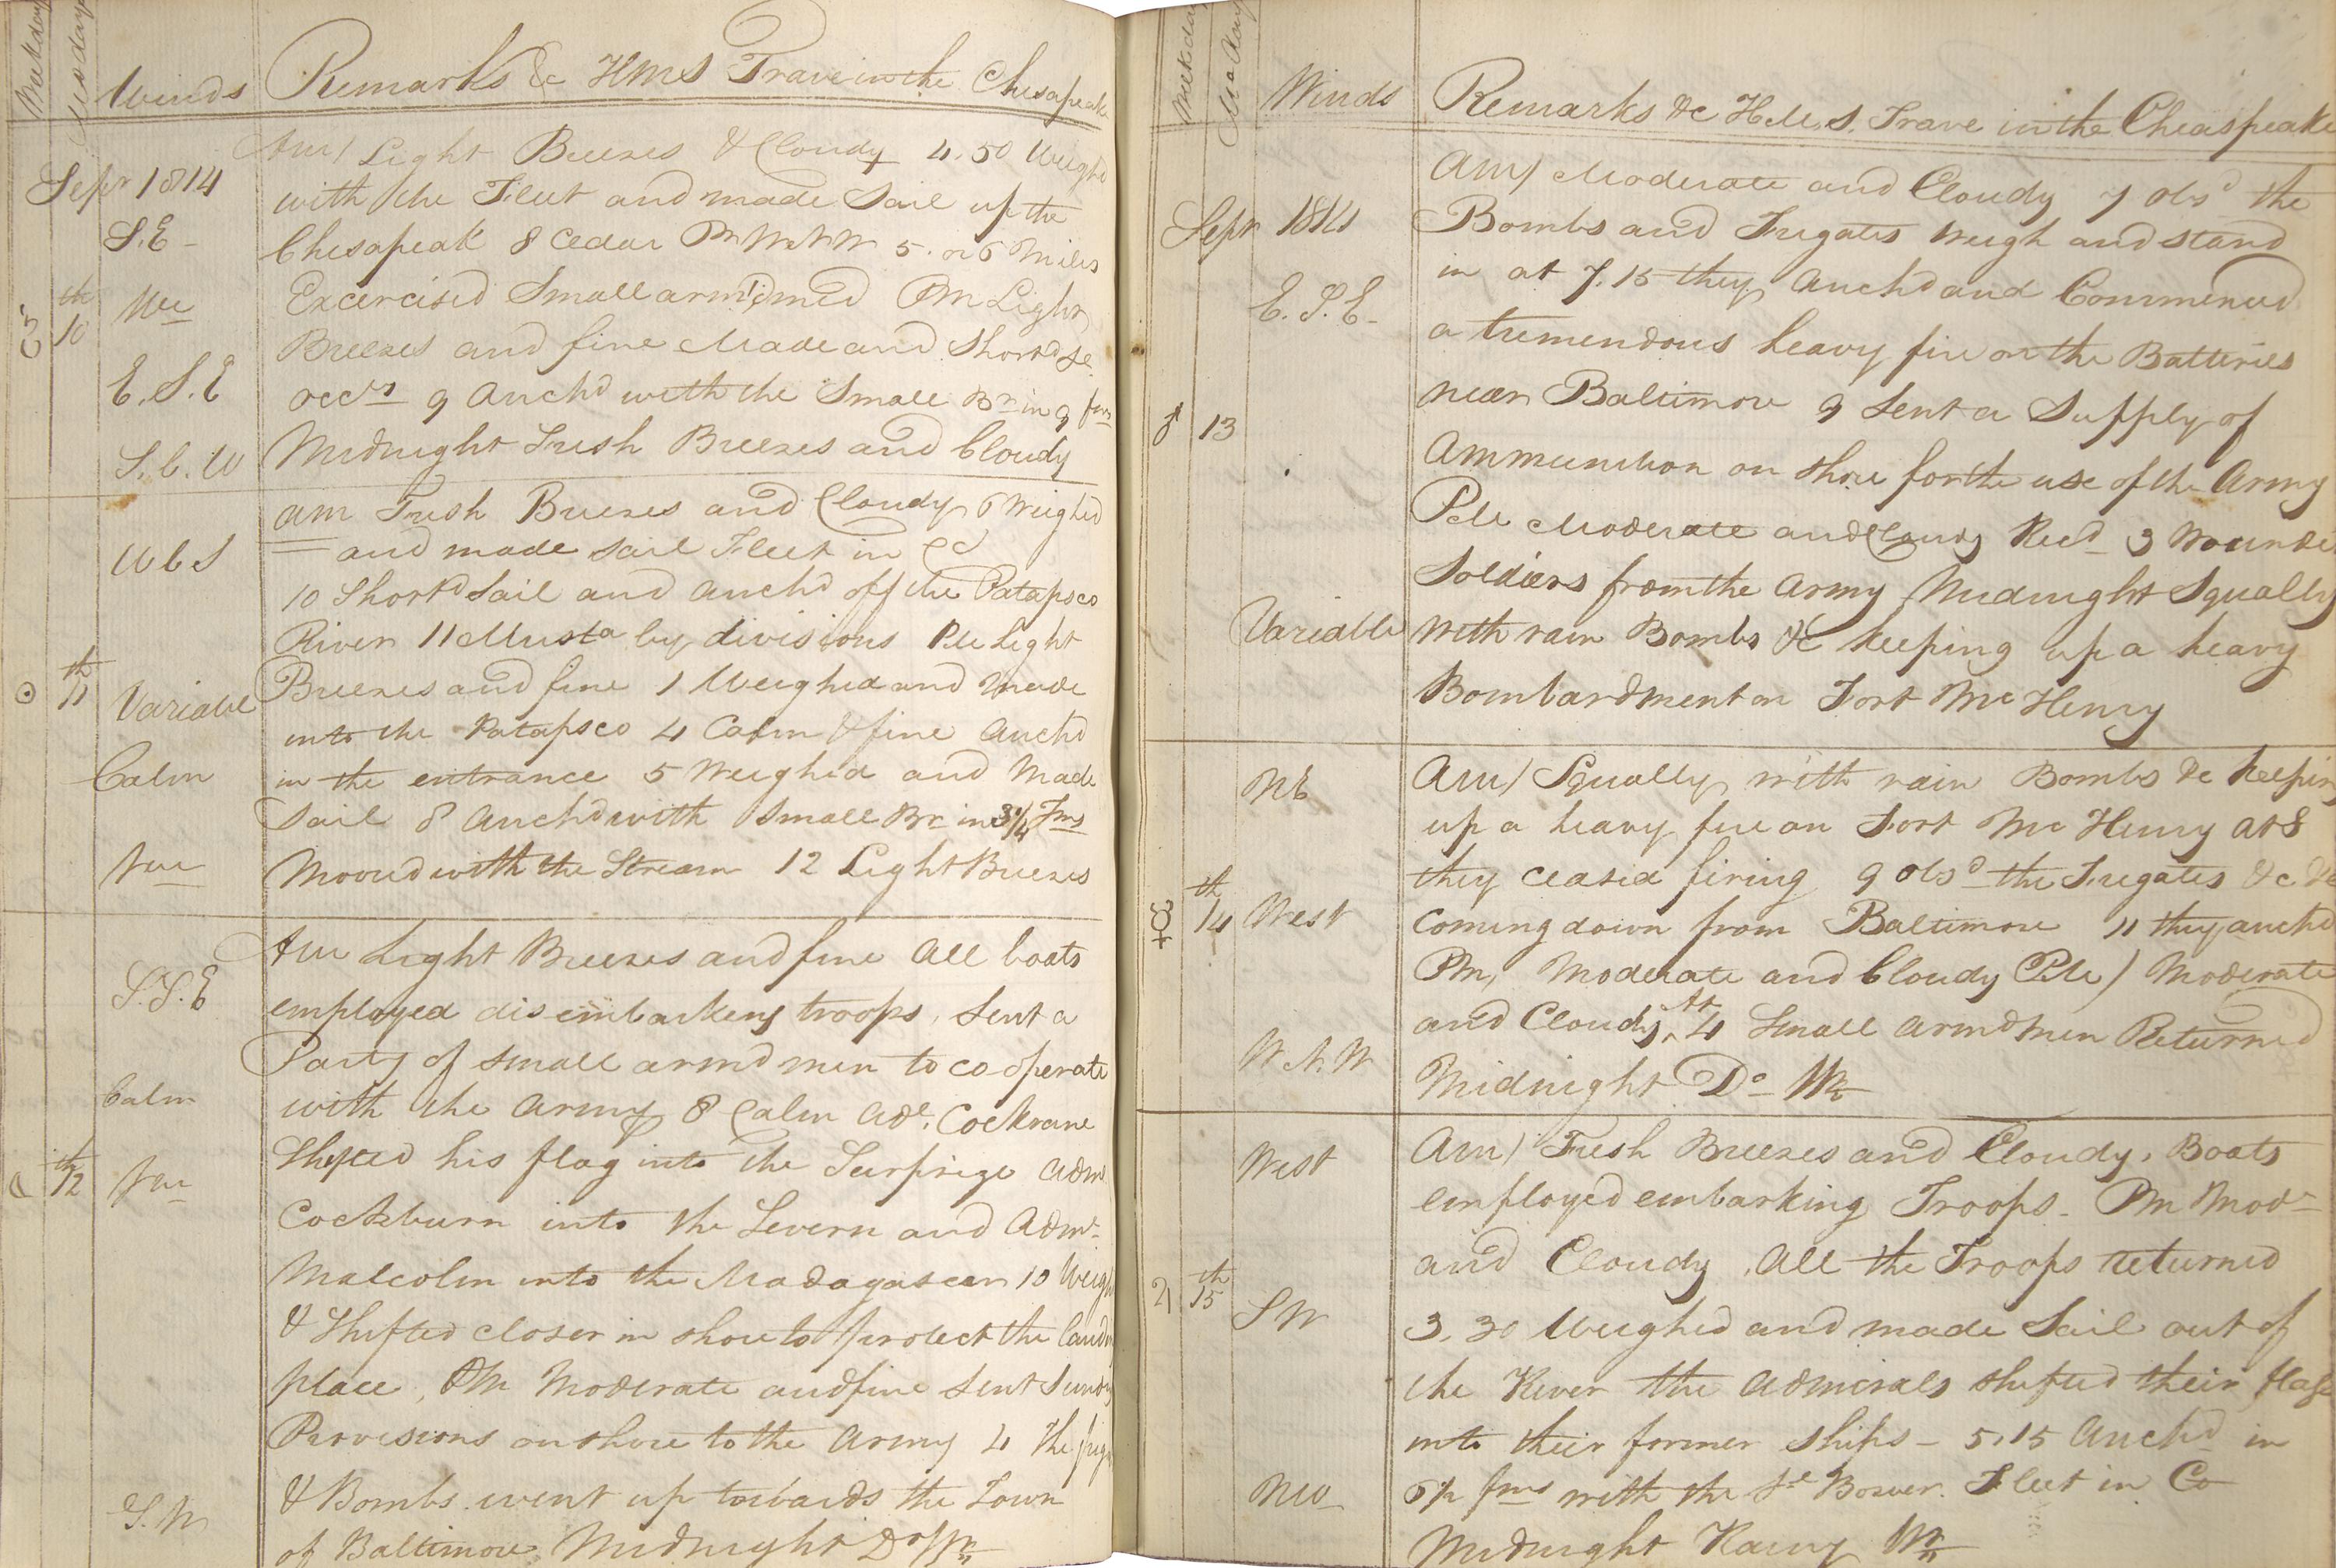 Week days
Mo days
Winds
Remarks &c HMS Trave in the Chesapeak
Sepr 1814
S.E
E.S.E
S.b.W
th
10
Am/ Light Breezes & Cloudy 4.50 Weighd
with the Fleet and made Sail up the
Chesapeak 8 Cedar Pt WNW 5 or 6 Miles
Excercised Small arm'd men PM Light
Breezes and fine Made and Shortd Sl
occly 9 Anchd with the Small Br in 9 fms
Midnight Fresh Breezes and Cloudy
WbS
th
11
Variable
Calm
am Fresh Breezes and Cloudy 6 Weighed
and made sail Fleet in Co
10 Shortd Sail and anchd off the Patapsco
River 11 Musta by divisions PM Light
Breezes and fine 1 Weighed and Made
into the Patapsco 4 Calm & fine Anchd
in the entrance 5 Weighed and Made
Sail 8 Anchd with Small Br in 3 1/4 Fms
Moored with the Stream 12 Light Breezes
S.S.E
Calm
th
12
S.W
Am Light Breezes and fine All boats
employed disembarkeng troops, Sent a
Party of small armd men to co-operate
with the Army 8 Calm Adl. Cockrane
Shifted his flag into the Surprize Adml
Cockburn into the Severn and Adml
Malcolm into the Madagascar 10 Weighd
& Shifted closer in shore to protect the landg
place, PM Moderate and fine Sent Sundry
Provisions on shore to the Army 4 The frigs
& Bombs went up towards the Town
of Baltimore Midnight Do Wr
Week days
Mo days
Winds
Remarks &c H.M.S. Trave in the Cheaspeake
Sepr 1814
E.S.E
♂ 13
Variable
AM/ Moderate and Cloudy 7 Obsd the
Bombs and Frigates weigh and stand
in at 7.15 they Anchd and Commenced
a tremendous heavy fire on the Batteries
near Baltimore 9 Sent a Supply of
Ammunition on shore for the use of the Army
PM Moderate and Cloudy Recd 3 Wounded
Soldiers from the Army Midnight Squally
with rain Bombs &c keeping up a heavy
Bombardment on Fort Mc Henry
☿
th
14
West
W.N.W
AM/ Squally with rain Bombs &c keeping
up a heavy fire on Fort Mc Henry At 8
they ceased firing 9 Obsd the Frigates &c &c
Coming down from Baltimore 11 they anchd
PM, Moderate and Cloudy PM/ Moderate
and Cloudy, At 4 Small armd men Returned
Midnight Do Wr
West
♃
th
15
SW
AM/ Fresh Breezes and Cloudy, Boats
employed embarking Troops. PM Modr
and Cloudy, All the Troops returned
3.30 Weighed and made Sail out of
the River the Admirals shifted their flags
into their former ships - 5.15 Anchd in
6 1/2 fms with the St Bower. Fleet in Co
Midnight Hazey Wr